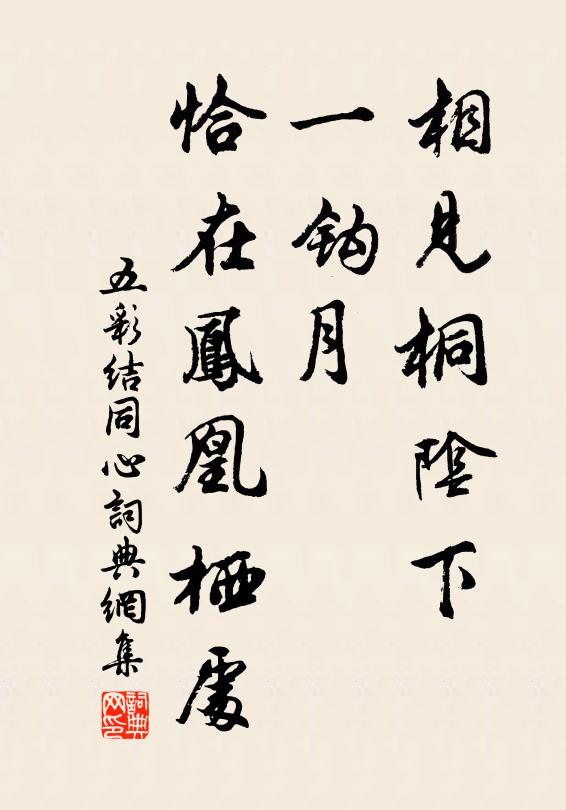 相見桐陰下
一鈎月
恰在鳳凰栖處
五彩結同心詞典網集
詞典
网印